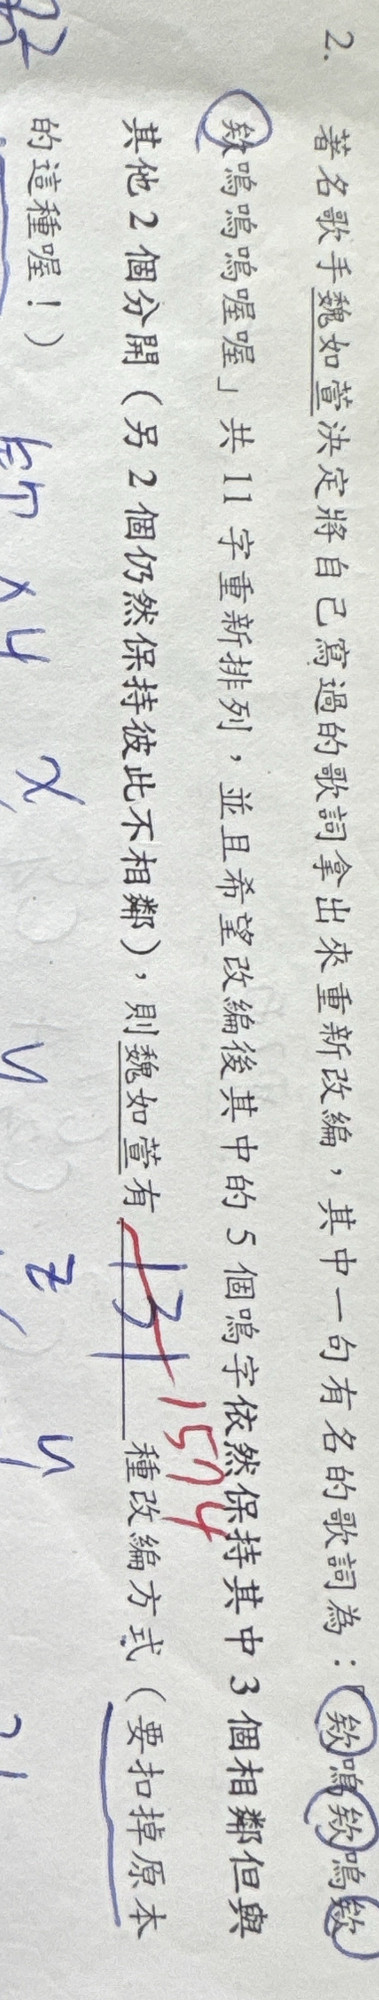 2. 著名歌手魏如萱決定將自己寫過的歌詞拿出來重新改編，其中一句有名的歌詞為：「欸嗚欸嗚欸
欸嗚嗚嗚喔喔」共 11 字重新排列，並且希望改編後其中的 5 個嗚字依然保持其中 3 個相鄰但與
其他 2 個分開（另 2 個仍然保持彼此不相鄰），則魏如萱有 131 1574 種改編方式（要扣掉原本
的這種喔！）